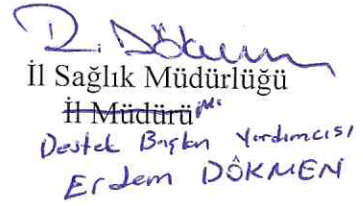 İl Sağlık Müdürlüğü
İl Müdürü
Destek Başkan Yardımcısı
Erdem DÖKMEN